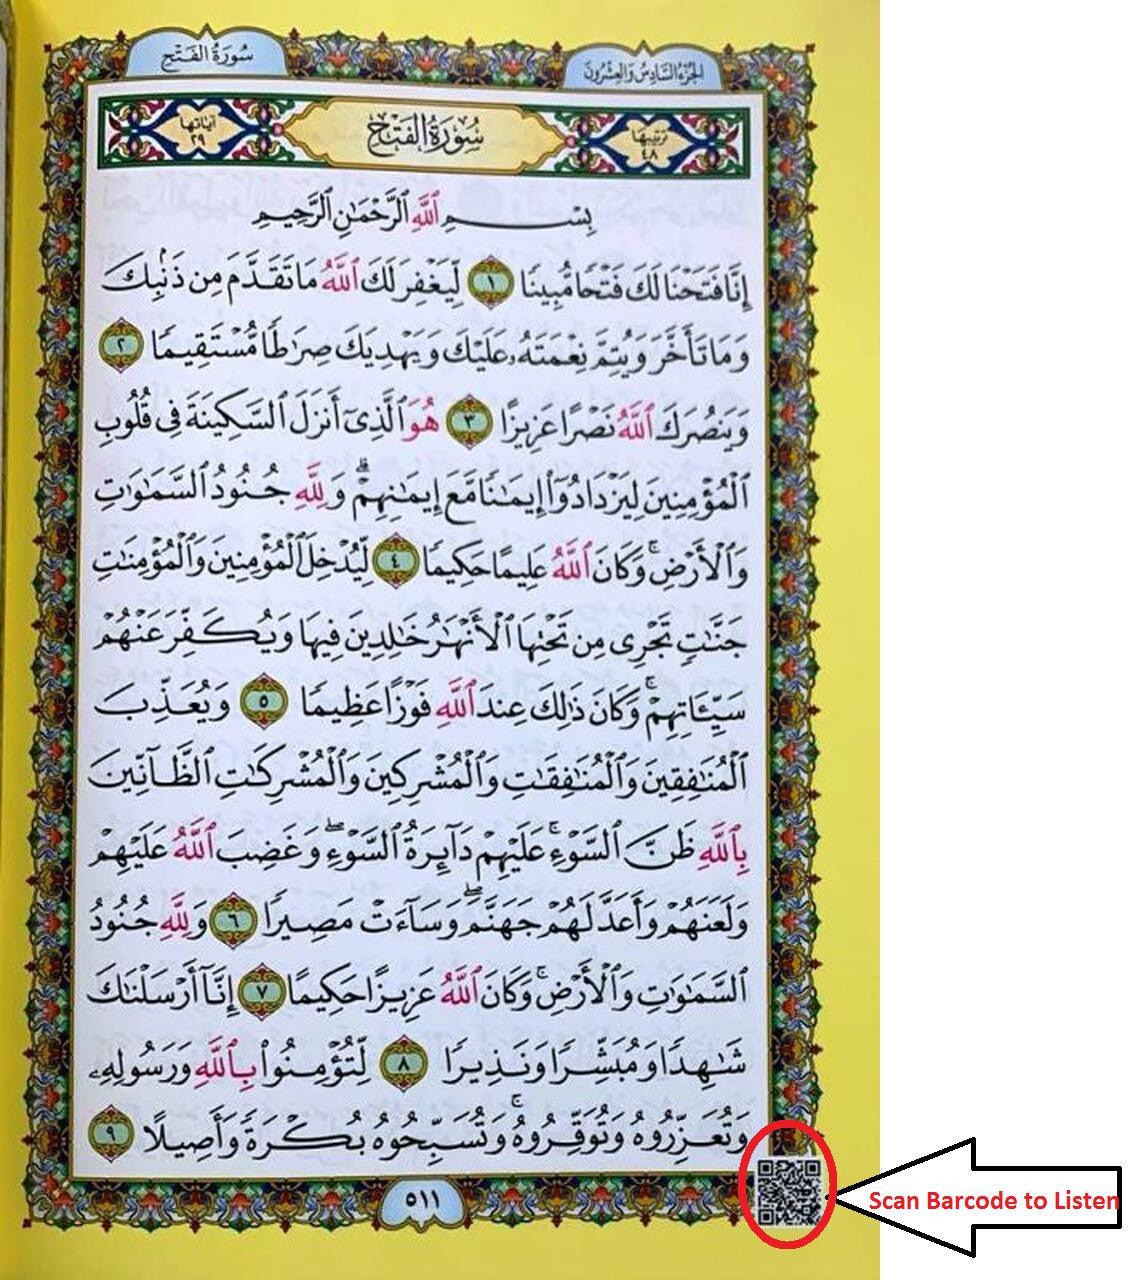 سُورَةُ الفَتْحِ
الجُزْءُ السَّادِسُ وَالعِشْرُونَ
تَرتِيبُهَا ٤٨
سُورَةُ الفَتْحِ
آيَاتُهَا ٢٩
بِسْمِ ٱللَّهِ ٱلرَّحْمَٰنِ ٱلرَّحِيمِ
إِنَّا فَتَحْنَا لَكَ فَتْحًا مُّبِينًا ١ لِّيَغْفِرَ لَكَ ٱللَّهُ مَا تَقَدَّمَ مِن ذَنۢبِكَ
وَمَا تَأَخَّرَ وَيُتِمَّ نِعْمَتَهُۥ عَلَيْكَ وَيَهْدِيَكَ صِرَٰطًا مُّسْتَقِيمًا ٢
وَيَنصُرَكَ ٱللَّهُ نَصْرًا عَزِيزًا ٣ هُوَ ٱلَّذِىٓ أَنزَلَ ٱلسَّكِينَةَ فِى قُلُوبِ
ٱلْمُؤْمِنِينَ لِيَزْدَادُوٓا۟ إِيمَٰنًا مَّعَ إِيمَٰنِهِمْ ۗ وَلِلَّهِ جُنُودُ ٱلسَّمَٰوَٰتِ
وَٱلْأَرْضِ ۚ وَكَانَ ٱللَّهُ عَلِيمًا حَكِيمًا ٤ لِّيُدْخِلَ ٱلْمُؤْمِنِينَ وَٱلْمُؤْمِنَٰتِ
جَنَّٰتٍ تَجْرِى مِن تَحْتِهَا ٱلْأَنْهَٰرُ خَٰلِدِينَ فِيهَا وَيُكَفِّرَ عَنْهُمْ
سَيِّـَٔاتِهِمْ ۚ وَكَانَ ذَٰلِكَ عِندَ ٱللَّهِ فَوْزًا عَظِيمًا ٥ وَيُعَذِّبَ
ٱلْمُنَٰفِقِينَ وَٱلْمُنَٰفِقَٰتِ وَٱلْمُشْرِكِينَ وَٱلْمُشْرِكَٰتِ ٱلظَّآنِّينَ
بِٱللَّهِ ظَنَّ ٱلسَّوْءِ ۚ عَلَيْهِمْ دَآئِرَةُ ٱلسَّوْءِ ۖ وَغَضِبَ ٱللَّهُ عَلَيْهِمْ
وَلَعَنَهُمْ وَأَعَدَّ لَهُمْ جَهَنَّمَ ۖ وَسَآءَتْ مَصِيرًا ٦ وَلِلَّهِ جُنُودُ
ٱلسَّمَٰوَٰتِ وَٱلْأَرْضِ ۚ وَكَانَ ٱللَّهُ عَزِيزًا حَكِيمًا ٧ إِنَّآ أَرْسَلْنَٰكَ
شَٰهِدًا وَمُبَشِّرًا وَنَذِيرًا ٨ لِّتُؤْمِنُوا۟ بِٱللَّهِ وَرَسُولِهِۦ
وَتُعَزِّرُوهُ وَتُوَقِّرُوهُ ۚ وَتُسَبِّحُوهُ بُكْرَةً وَأَصِيلًا ٩
٥١١
Scan Barcode to Listen